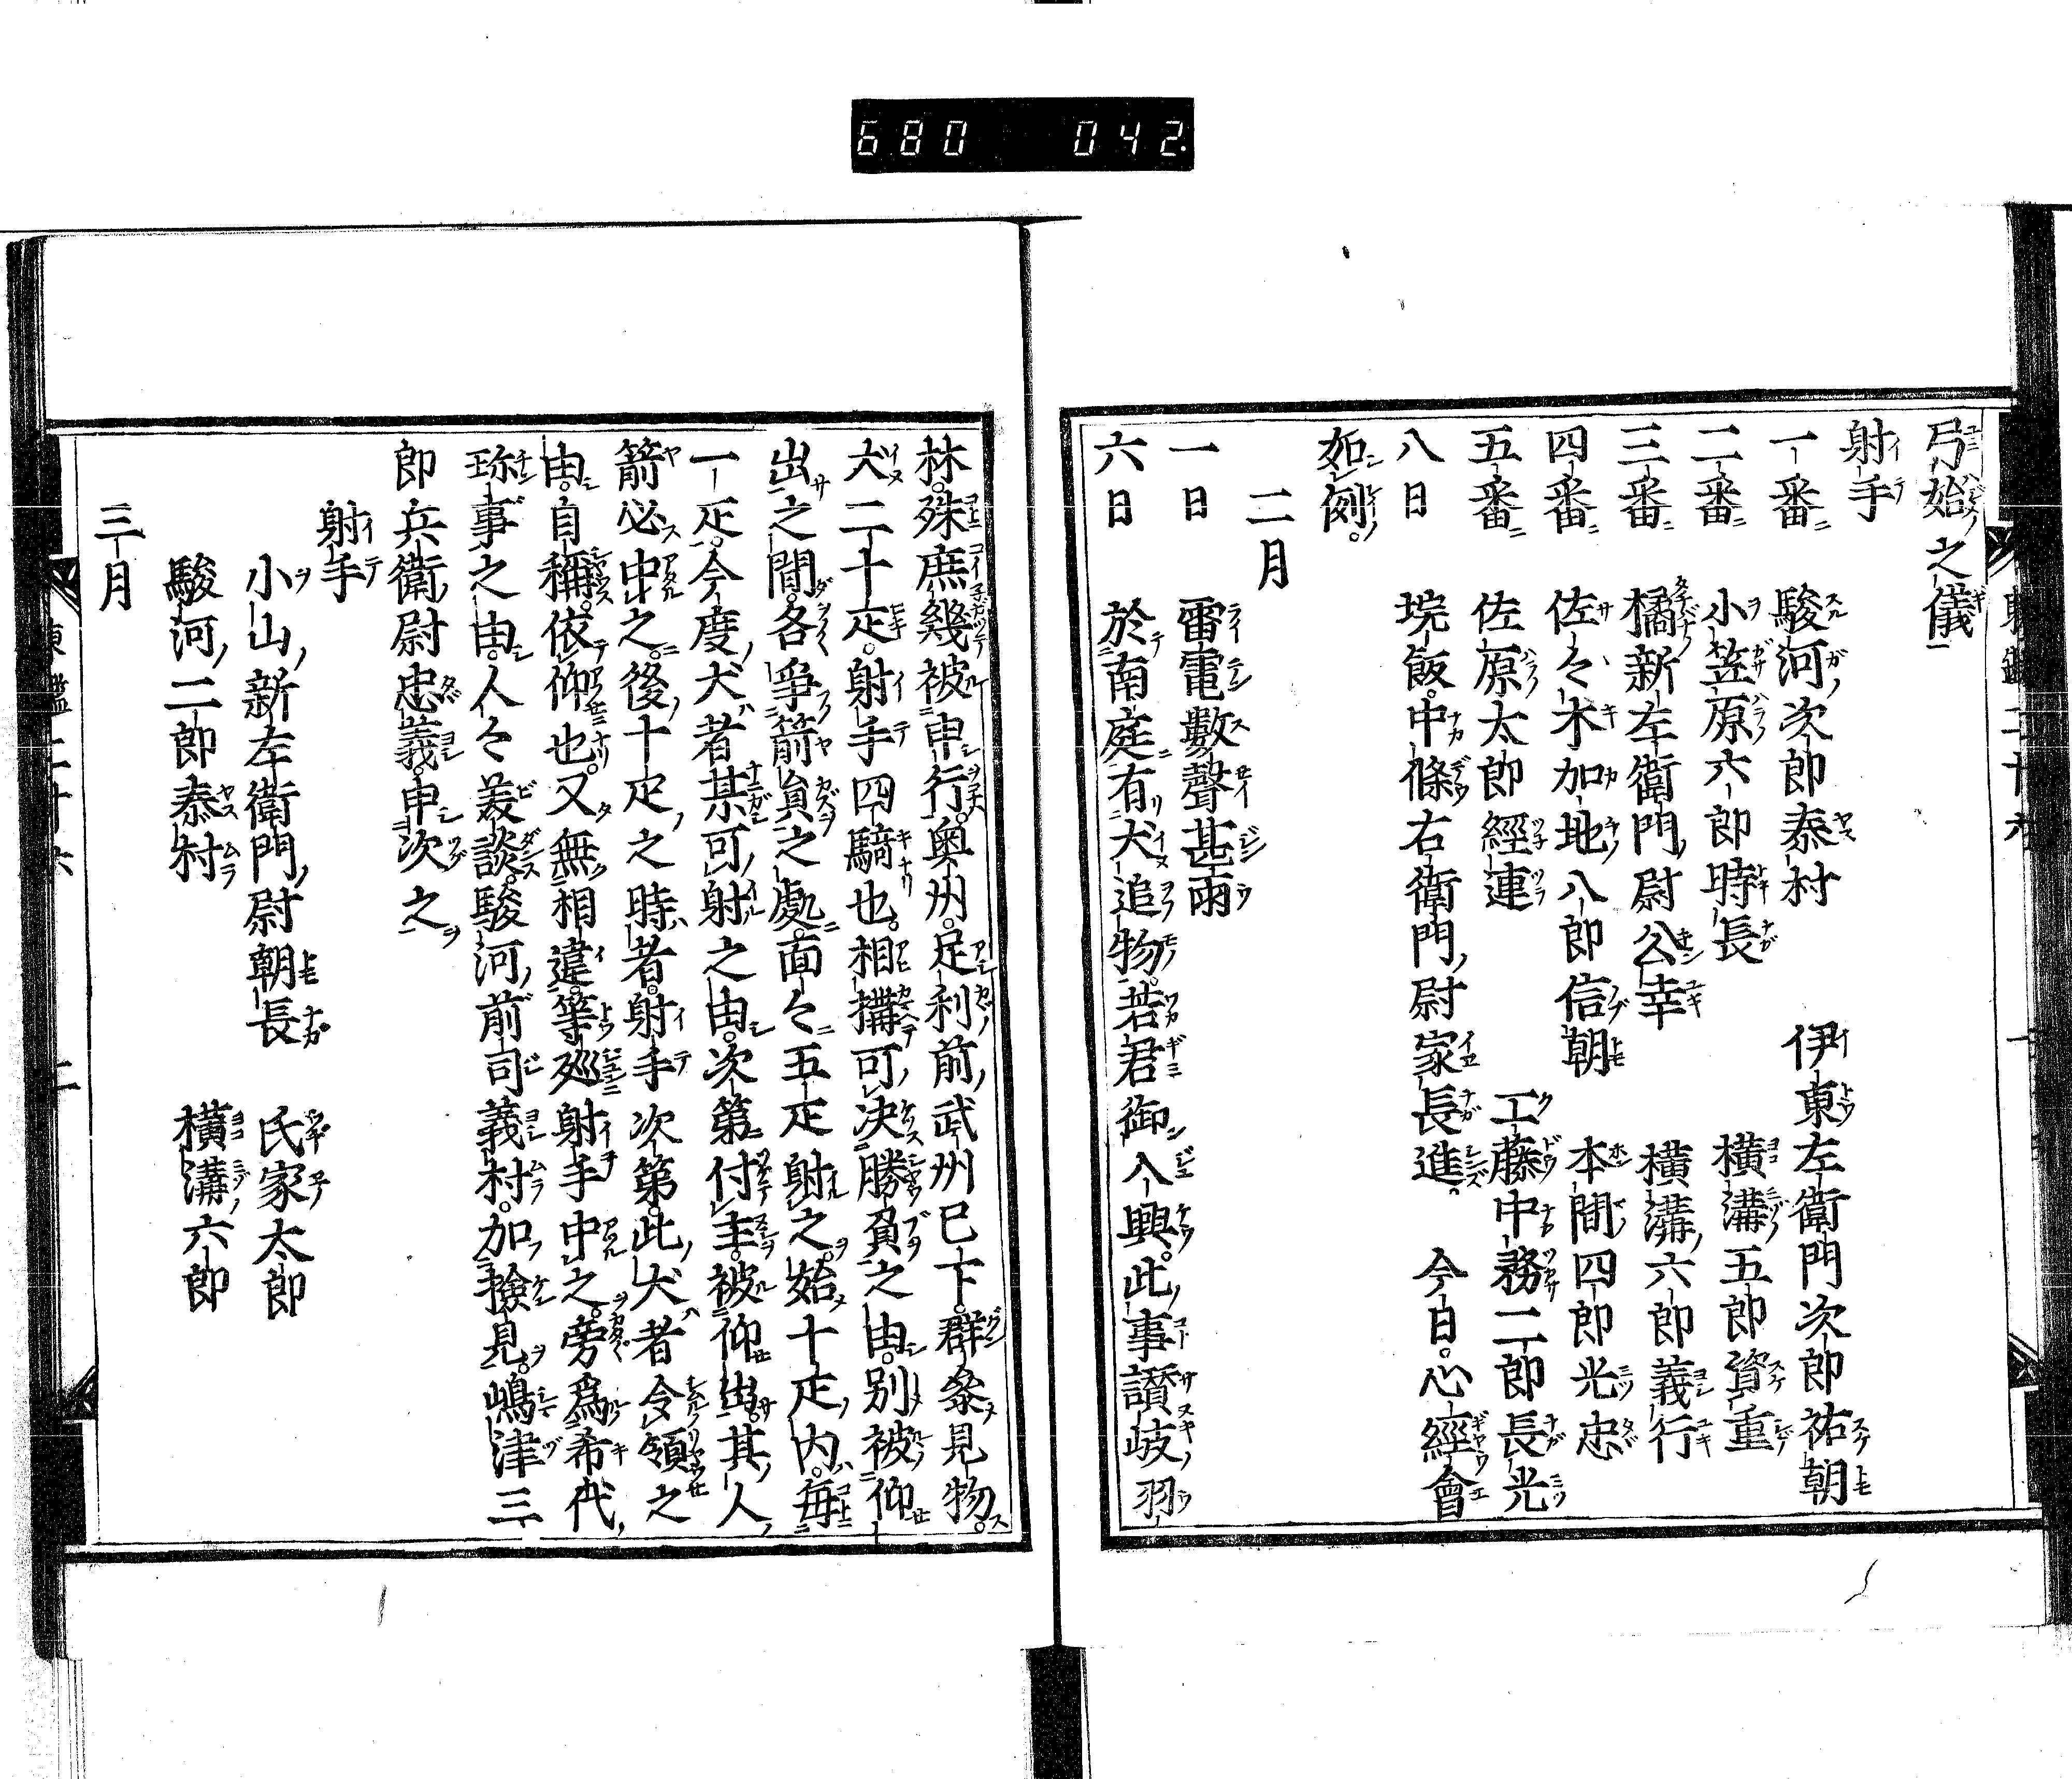 680 042
弓始之儀
射手
一番 駿河次郎泰村 伊東左衛門次郎祐朝
二番 小笠原六郎時長 横溝五郎資重
三番 橘新左衛門尉公幸 横溝六郎義行
四番 佐々木加地八郎信朝 本間四郎光忠
五番 佐原太郎經連 工藤中務二郎長光
八日 垸飯。中條右衛門尉家長進。 今日。心經會
如例。
二月
一日 雷電數聲甚雨
六日 於南庭有犬追物。若君御入興。此事讃岐羽
林。殊庶幾被申行。奥州。足利前武州已下。群參見物。
犬二十疋。射手四騎也。相搆可决勝負之由。別被仰
出之間。各爭箭員之處。面々五疋射之。始十疋内。毎
一疋。今度犬者某可射之由。次第付主。被仰出。其人
箭必中之。後十疋之時者。射手次第。此犬者令領之
由。自稱。依仰也。又無相違。等廵射手中之。旁爲希代
珎事之由。人々美談。駿河前司義村。加撿見。嶋津三
郎兵衛尉忠義。申次之
射手
小山新左衛門尉朝長 氏家太郎
駿河二郎泰村 横溝六郎
三月